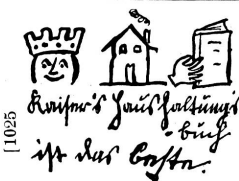 Kaiser's Haushaltungs-
buch
ist das beste.
[1025